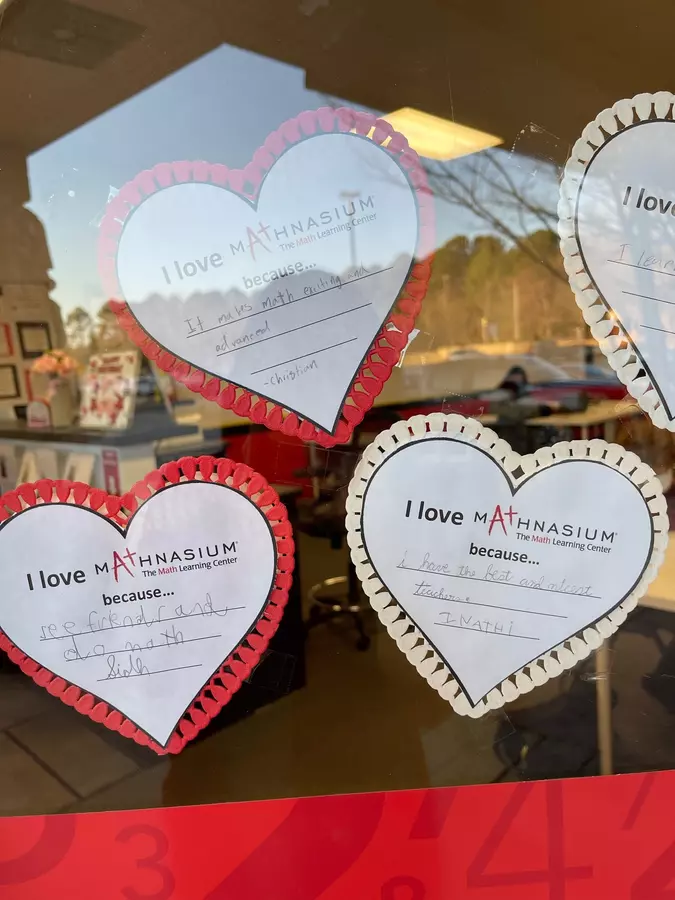 I love MATHNASIUM
The Math Learning Center
because...
It makes math exciting and
advanced
-Christian
I love
I learn
I love MATHNASIUM
The Math Learning Center
because...
see firends and
do math
Sidh
I love MATHNASIUM
The Math Learning Center
because...
i have the best and nicest
teachers
INATHI
3
2
4
8